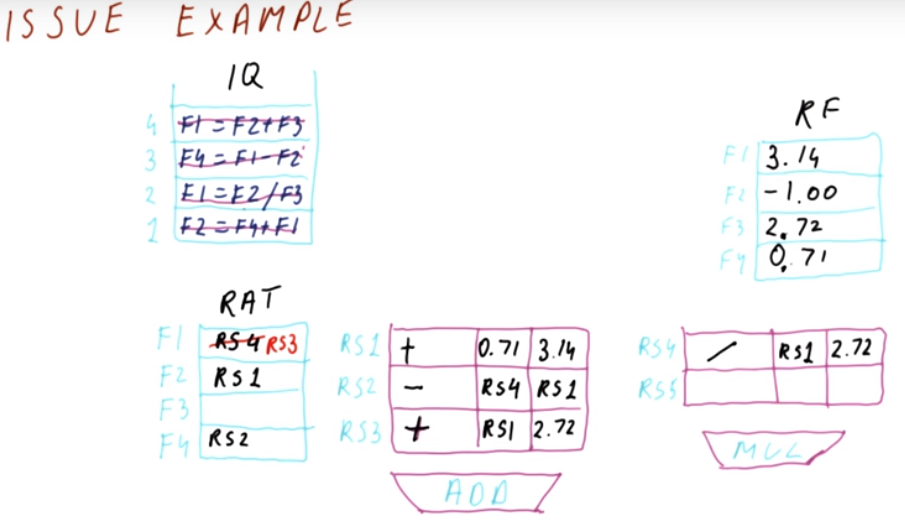 ISSUE EXAMPLE
IQ
4 F1 = F2+F3
3 F4 = F1-F2
2 F1 = F2/F3
1 F2 = F4+F1
RF
F1 3.14
F2 -1.00
F3 2.72
F4 0.71
RAT
F1 RS4 RS3
F2 RS1
F3
F4 RS2
RS1 + 0.71 3.14
RS2 - RS4 RS1
RS3 + RS1 2.72
ADD
RS4 / RS1 2.72
RS5
MUL